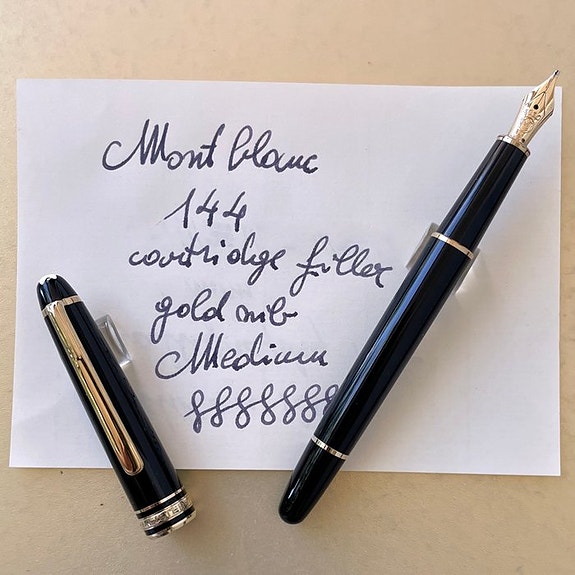 Mont blanc
144
cartridge filler
gold nib
Medium
8888888